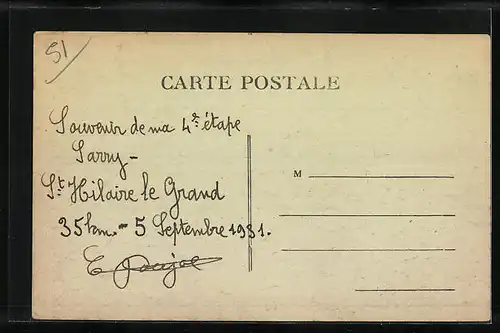 51
CARTE POSTALE
Souvenir de ma 4e étape
Sarry -
St Hilaire le Grand
35 km. - 5 Septembre 1931.
E Poujol
M